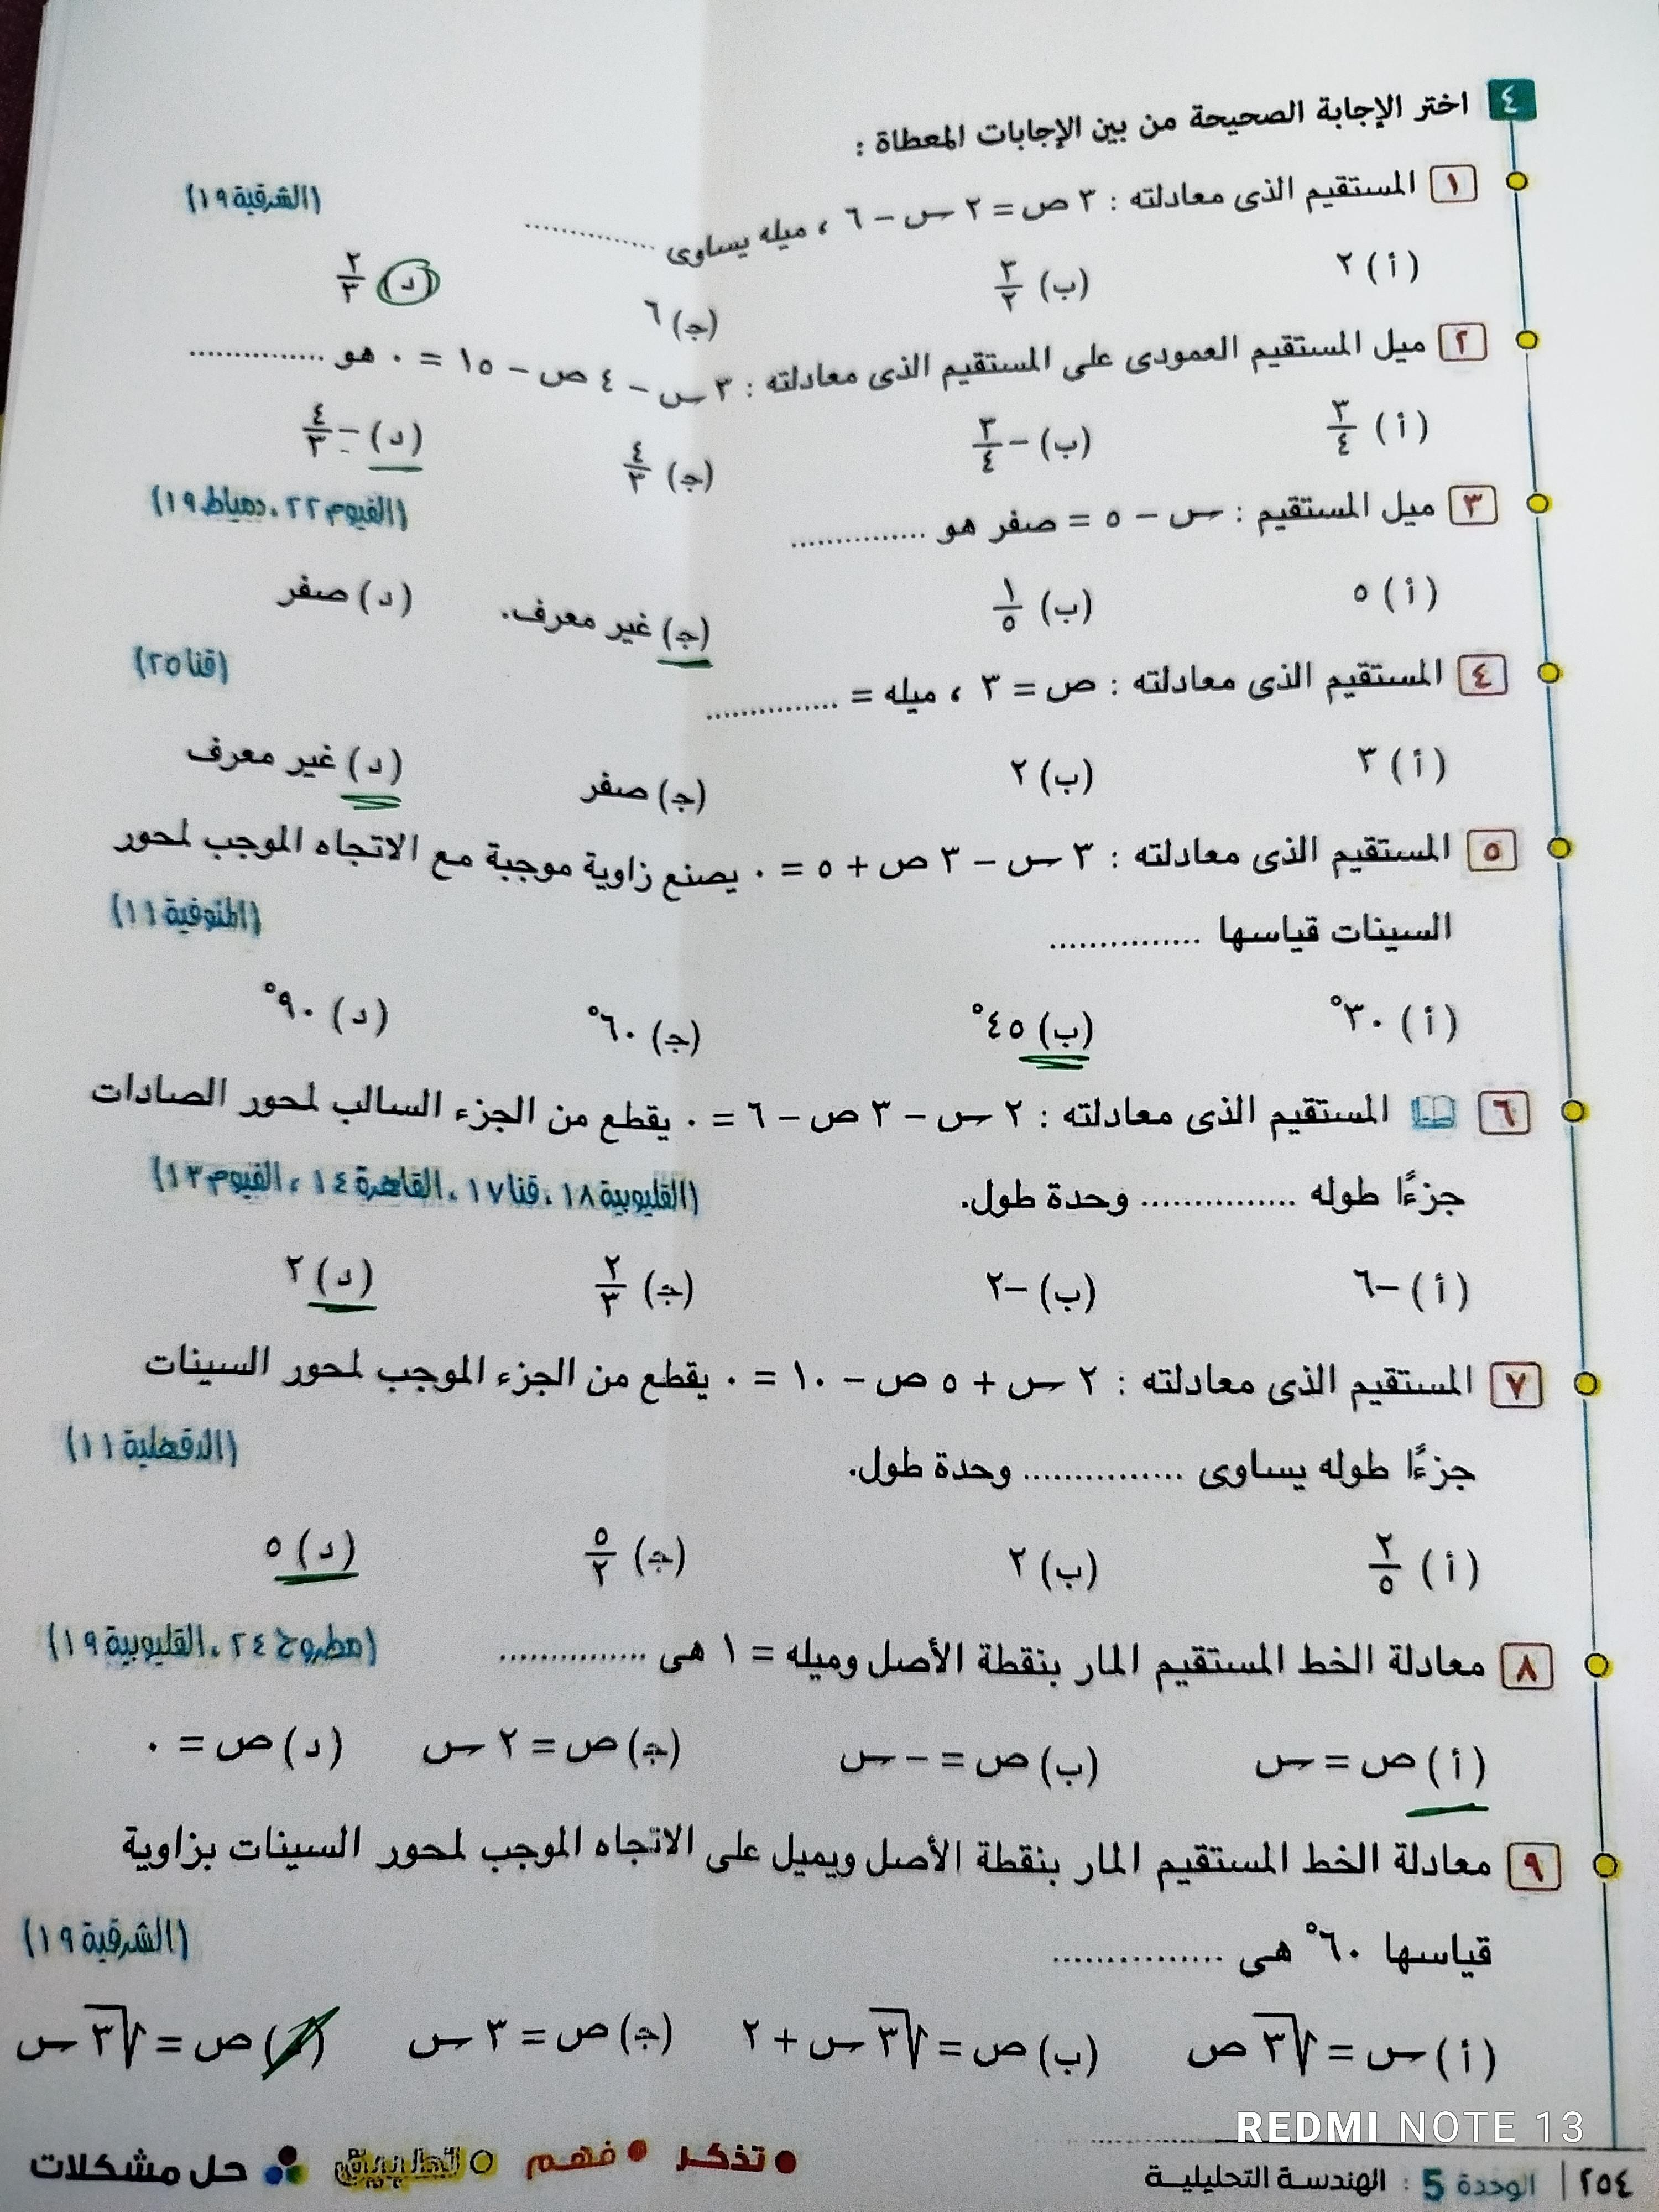 ٤ اختر الإجابة الصحيحة من بين الإجابات المعطاة :
١ المستقيم الذى معادلته : ٣ ص = ٢ س − ٦ ، ميله يساوى ............... (الشرقية ١٩)
(أ) ٢ (ب) ٣/٢ (جـ) ٦ (د) ٢/٣
٢ ميل المستقيم العمودى على المستقيم الذى معادلته : ٣ س − ٤ ص − ١٥ = ٠ هو ...............
(أ) ٣/٤ (ب) −٣/٤ (جـ) ٤/٣ (د) −٤/٣
(الفيوم ٢٢ ، دمياط ١٩)
٣ ميل المستقيم : س − ٥ = صفر هو ...............
(أ) ٥ (ب) ١/٥ (جـ) غير معرف. (د) صفر
(قنا ٢٥)
٤ المستقيم الذى معادلته : ص = ٣ ، ميله = ...............
(أ) ٣ (ب) ٢ (جـ) صفر (د) غير معرف
٥ المستقيم الذى معادلته : ٣ س − ٣ ص + ٥ = ٠ يصنع زاوية موجبة مع الاتجاه الموجب لمحور
السينات قياسها ............... (المنوفية ١١)
(أ) ٣٠° (ب) ٤٥° (جـ) ٦٠° (د) ٩٠°
٦ المستقيم الذى معادلته : ٢ س − ٣ ص − ٦ = ٠ يقطع من الجزء السالب لمحور الصادات
جزءًا طوله ............... وحدة طول. (القليوبية ١٨ ، قنا ١٧ ، القاهرة ١٤ ، الفيوم ١٣)
(أ) −٦ (ب) −٢ (جـ) ٢/٣ (د) ٢
٧ المستقيم الذى معادلته : ٢ س + ٥ ص − ١٠ = ٠ يقطع من الجزء الموجب لمحور السينات
جزءًا طوله يساوى ............... وحدة طول. (الدقهلية ١١)
(أ) ٢/٥ (ب) ٢ (جـ) ٥/٢ (د) ٥
٨ معادلة الخط المستقيم المار بنقطة الأصل وميله = ١ هى ............... (مطروح ٢٤ ، القليوبية ١٩)
(أ) ص = س (ب) ص = − س (جـ) ص = ٢ س (د) ص = ٠
٩ معادلة الخط المستقيم المار بنقطة الأصل ويميل على الاتجاه الموجب لمحور السينات بزاوية
قياسها ٦٠° هى ............... (الشرقية ١٩)
(أ) س = √٣ ص (ب) ص = √٣ س + ٢ (جـ) ص = ٣ س (د) ص = √٣ س
REDMI NOTE 13
٢٥٤ الوحدة 5 : الهندسة التحليلية تذكر فهم تطبيق حل مشكلات